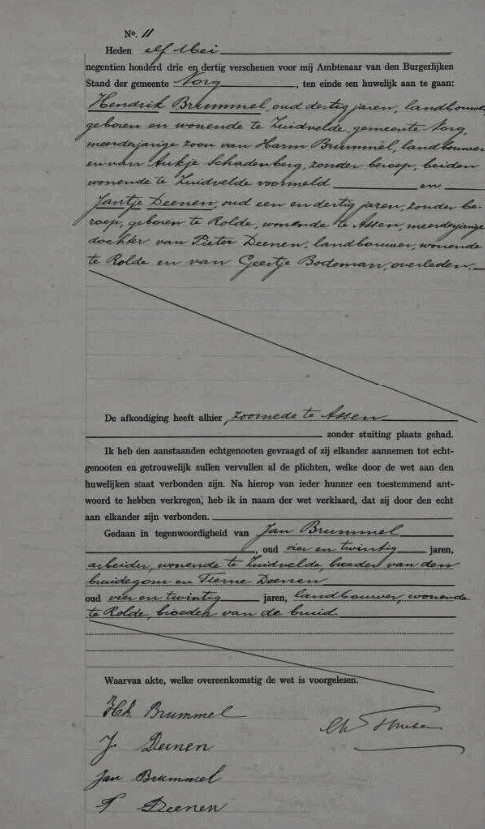 No. 11
Heden elf Mei
negentien honderd drie en dertig verschenen voor mij Ambtenaar van den Burgerlijken
Stand der gemeente Norg, ten einde een huwelijk aan te gaan:
Hendrik Brummel, oud dertig jaren, landbouwer,
geboren en wonende te Zuidvelde, gemeente Norg,
meerderjarige zoon van Harm Brummel, landbouwer
en van Aukje Schadenberg, zonder beroep, beiden
wonende te Zuidvelde voormeld en
Jantje Deenen, oud een en dertig jaren, zonder be-
roep, geboren te Rolde, wonende te Assen, meerderjarige
dochter van Pieter Deenen, landbouwer, wonende
te Rolde en van Geertje Bodeman, overleden.
De afkondiging heeft alhier, zoomede te Assen
zonder stuiting plaats gehad.
Ik heb den aanstaanden echtgenooten gevraagd of zij elkander aannemen tot echt-
genooten en getrouwelijk zullen vervullen al de plichten, welke door de wet aan den
huwelijken staat verbonden zijn. Na hierop van ieder hunner een toestemmend ant-
woord te hebben verkregen, heb ik in naam der wet verklaard, dat zij door den echt
aan elkander zijn verbonden.
Gedaan in tegenwoordigheid van Jan Brummel
, oud vier en twintig jaren,
arbeider, wonende te Zuidvelde, broeder van den
bruidegom en Tieme Deenen
oud vier en twintig jaren, landbouwer, wonende
te Rolde, broeder van de bruid.
Waarvan akte, welke overeenkomstig de wet is voorgelezen.
Brummel
J. Deenen
Jan Brummel
T Deenen